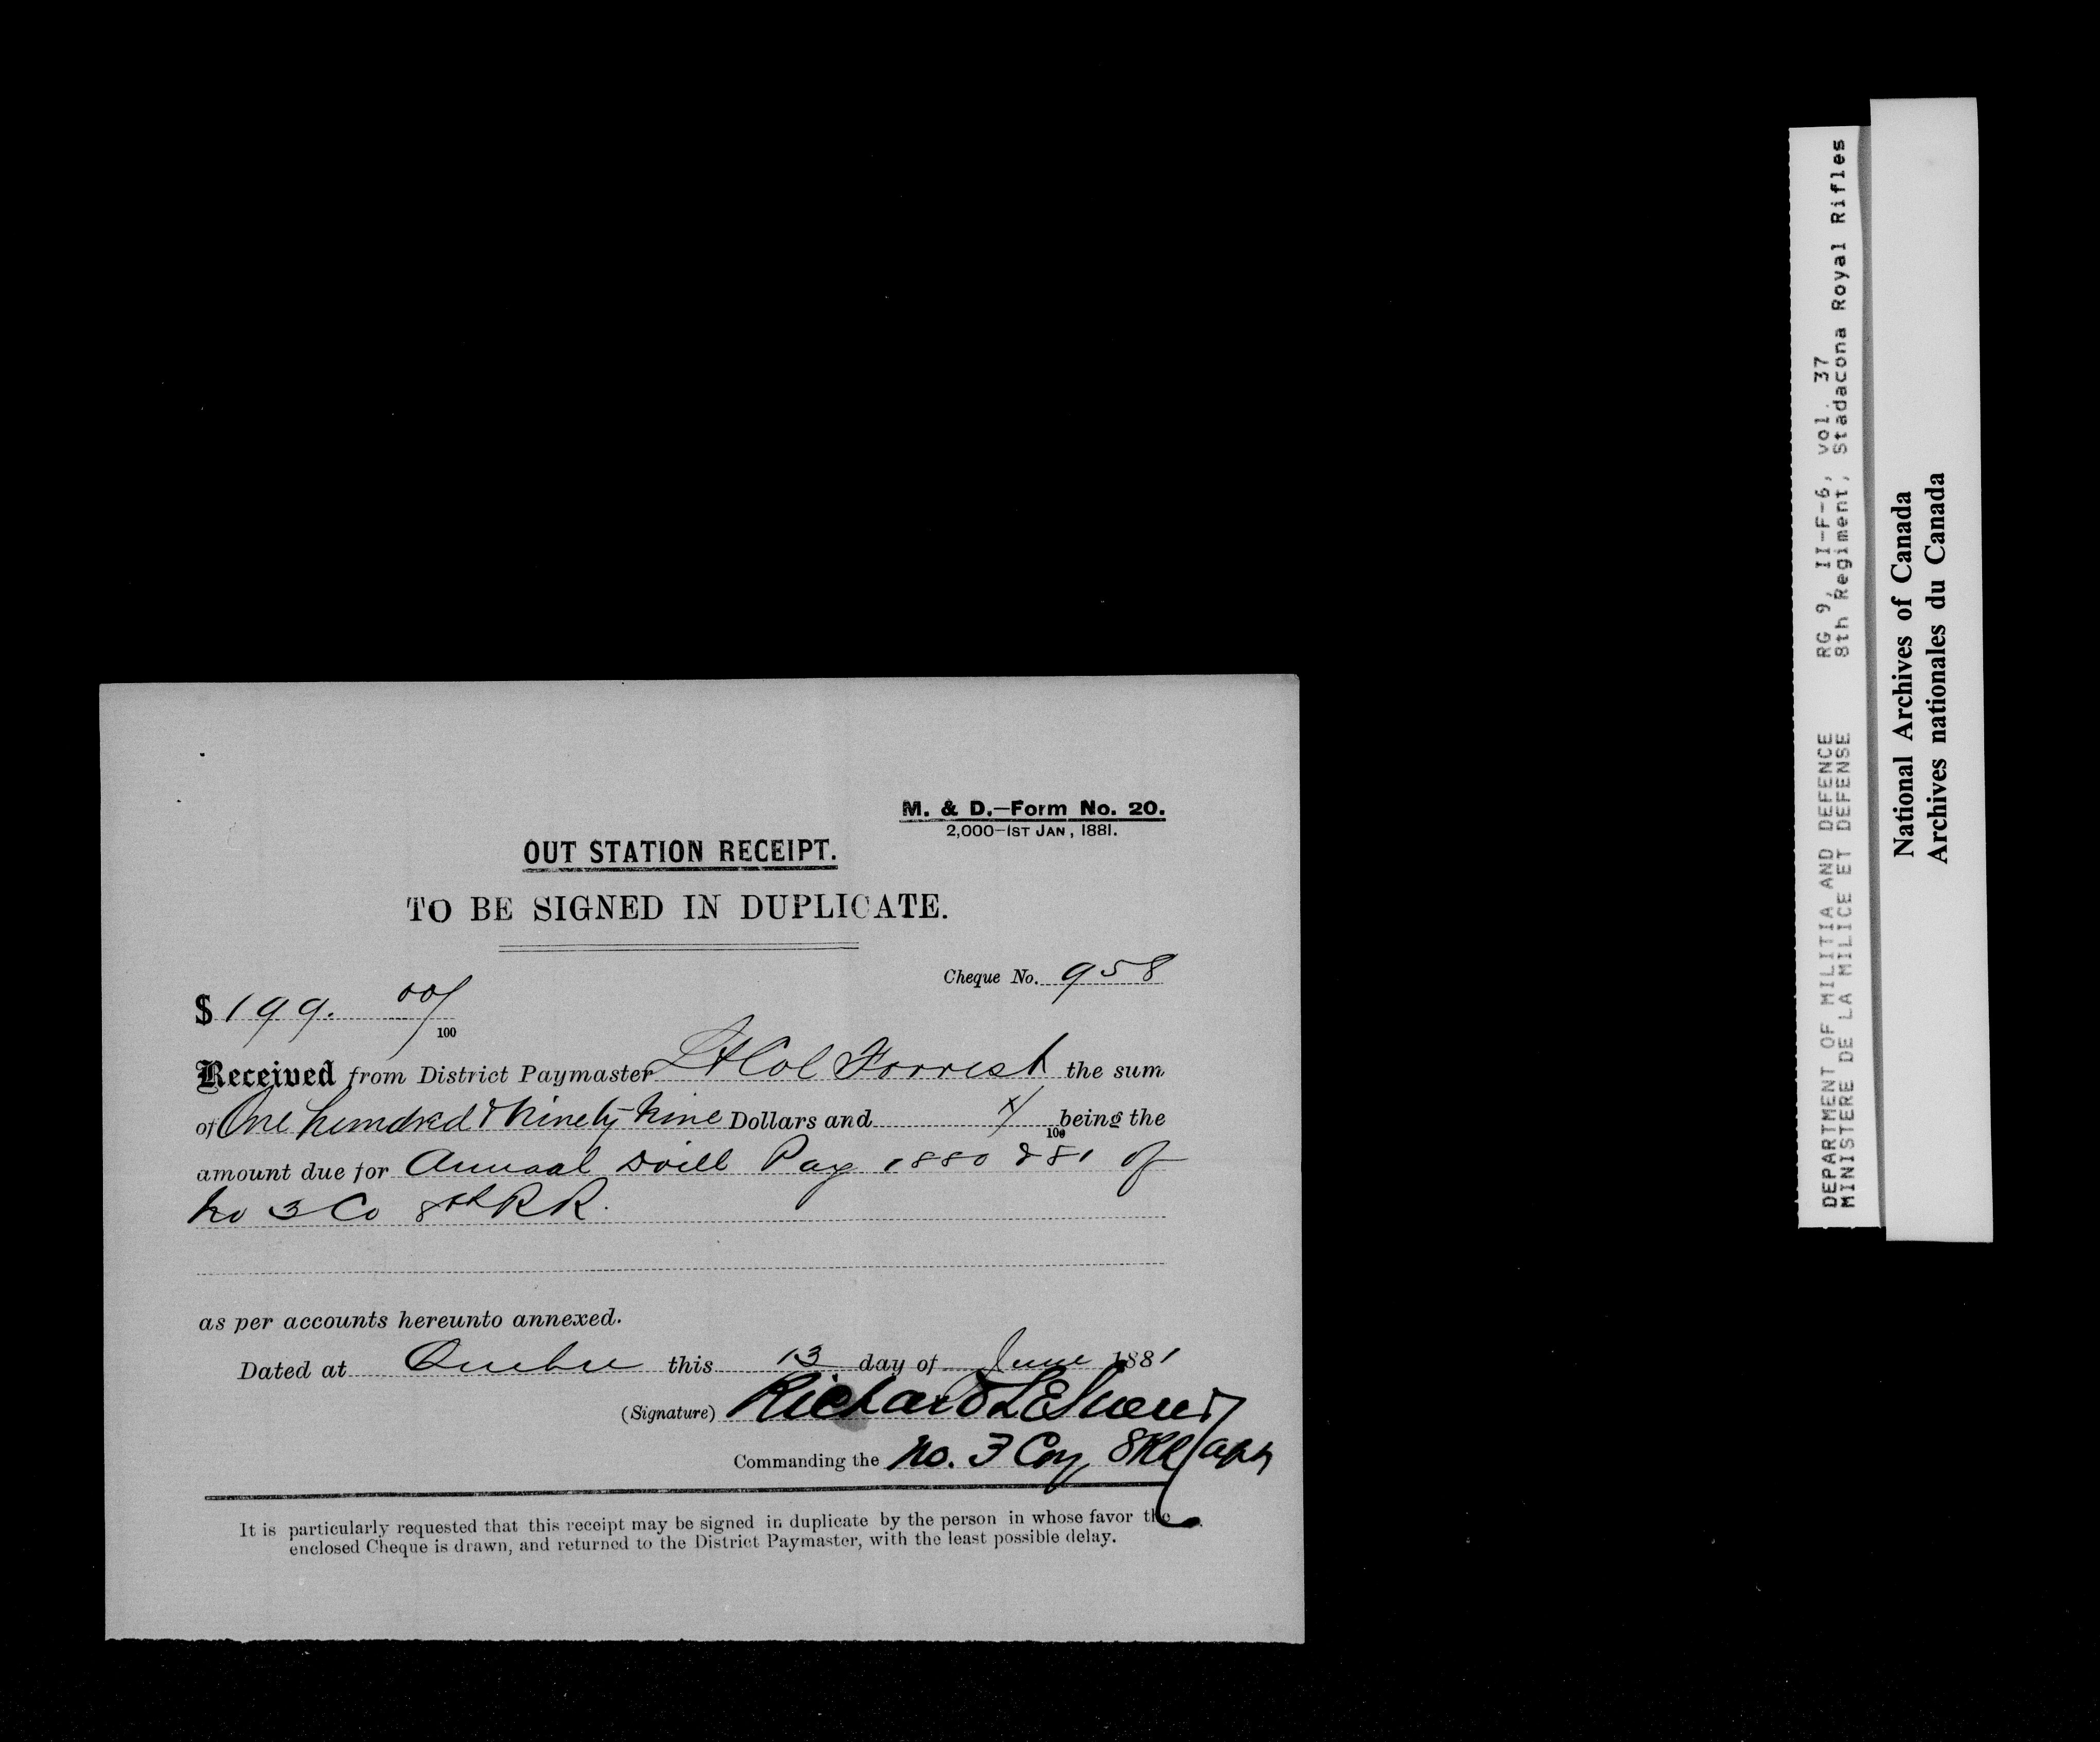 M. & D.—Form No. 20.
2,000—1ST JAN, 1881.
OUT STATION RECEIPT.
TO BE SIGNED IN DUPLICATE.
Cheque No. 958
$ 199. 00/100
Received from District Paymaster Lt Col Forrest the sum
of One hundred & Ninety Nine Dollars and x/100 being the
amount due for Annual Drill Pay 1880 & 81 of
No 3 Co 8th R R.
as per accounts hereunto annexed.
Dated at Quebec this 13 day of June 1881
(Signature) Richard
Commanding the No. 3 Coy 8RR Capt
It is particularly requested that this receipt may be signed in duplicate by the person in whose favor the
enclosed Cheque is drawn, and returned to the District Paymaster, with the least possible delay.
DEPARTMENT OF MILITIA AND DEFENCE RG 9, II-F-6, vol. 37
MINISTERE DE LA MILICE ET DEFENSE 8th Regiment, Stadacona Royal Rifles
National Archives of Canada
Archives nationales du Canada